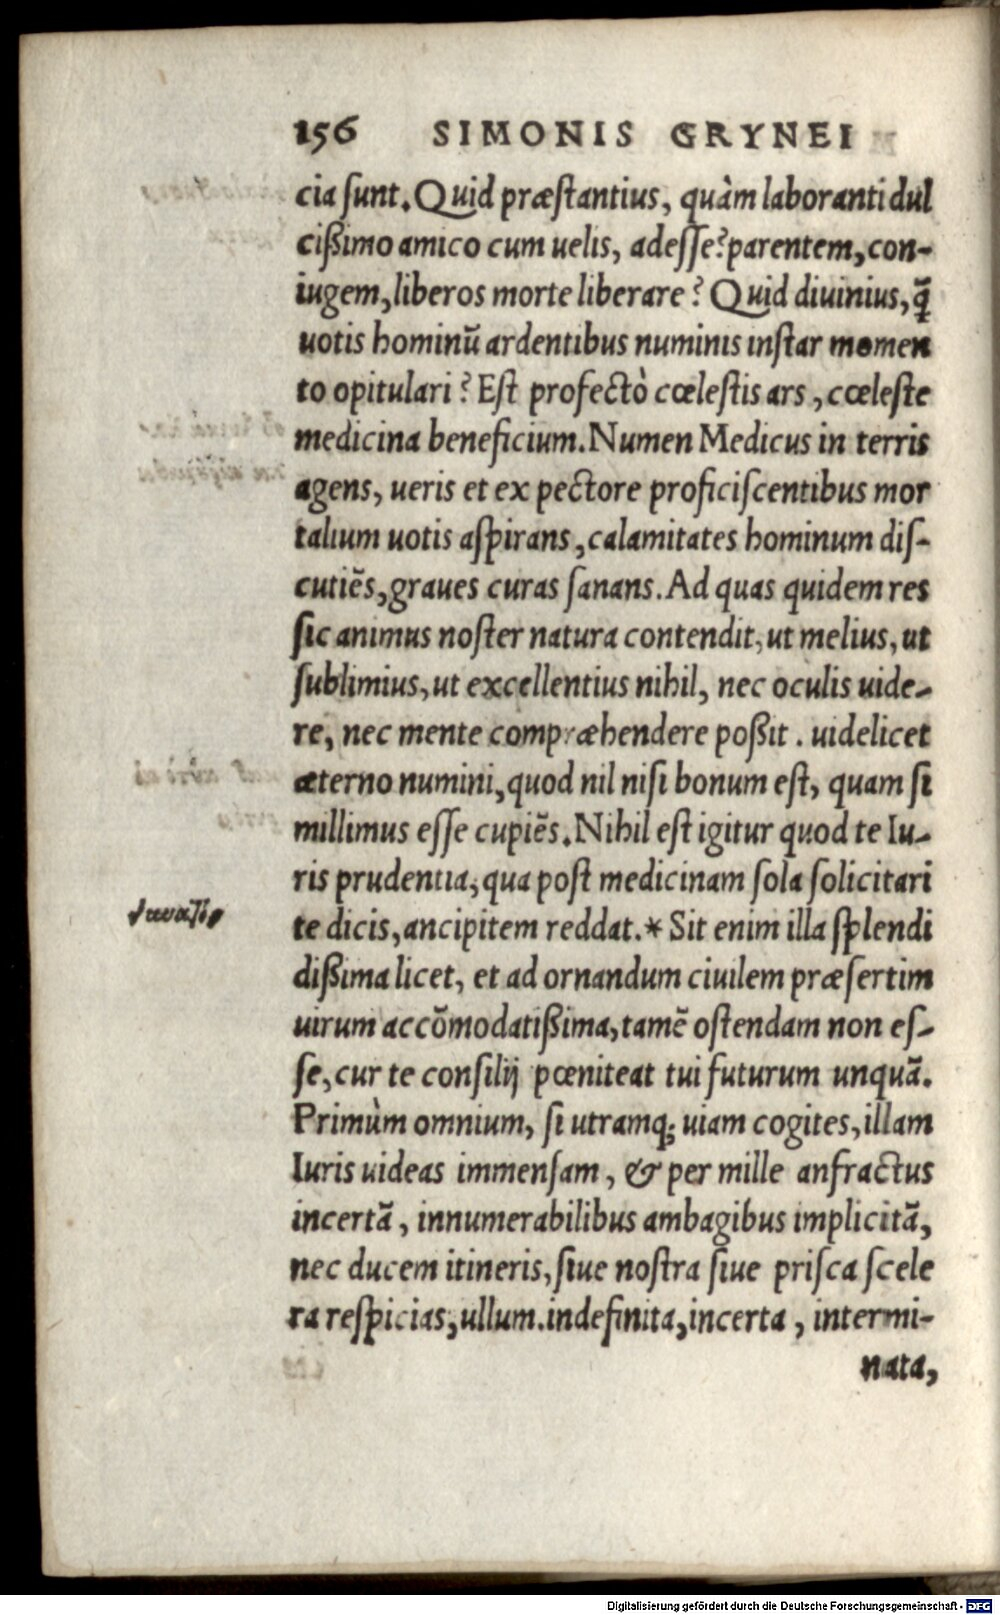 156 SIMONIS GRYNEI
cia ſunt. Quid præſtantius, quàm laboranti dul
cißimo amico cum uelis, adeſſe? parentem, con-
iugem, liberos morte liberare? Quid diuinius, q̃
uotis hominũ ardentibus numinis inſtar momen
to opitulari? Eſt profectò cœleſtis ars, cœleſte
medicina beneficium. Numen Medicus in terris
agens, ueris et ex pectore proficiſcentibus mor
talium uotis aſpirans, calamitates hominum diſ-
cutiẽs, graues curas ſanans. Ad quas quidem res
ſic animus noſter natura contendit, ut melius, ut
ſublimius, ut excellentius nihil, nec oculis uide-
re, nec mente compræhendere poßit. uidelicet
æterno numini, quod nil niſi bonum eſt, quam ſi
millimus eſſe cupiẽs. Nihil eſt igitur quod te Iu-
ris prudentia, qua poſt medicinam ſola ſolicitari
te dicis, ancipitem reddat.* Sit enim illa ſplendi
dißima licet, et ad ornandum ciuilem præſertim
uirum accõmodatißima, tamẽ oſtendam non eſ-
ſe, cur te conſilij pœniteat tui futurum unquã.
Primùm omnium, ſi utramq; uiam cogites, illam
Iuris uideas immenſam, & per mille anfractus
incertã, innumerabilibus ambagibus implicitã,
nec ducem itineris, ſiue noſtra ſiue priſca ſcele
ra reſpicias, ullum. indefinita, incerta, intermi-
nata,
Digitalisierung gefördert durch die Deutsche Forschungsgemeinschaft - DFG